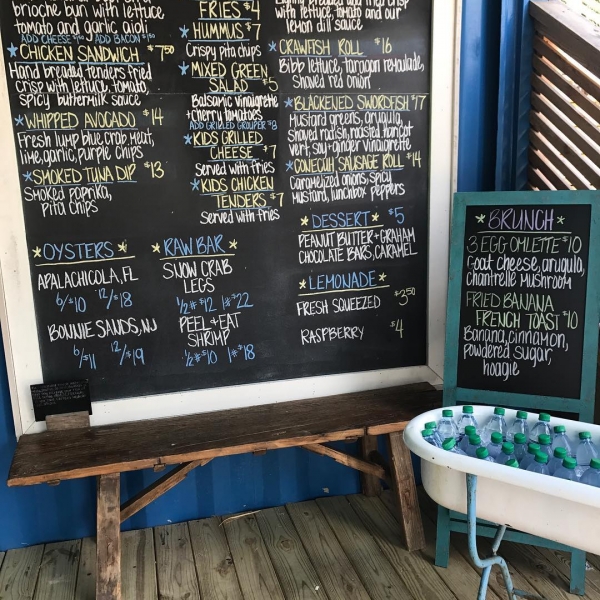 brioche bun with lettuce
tomato and garlic aioli
ADD CHEESE $1.50 ADD BACON $1.50
*CHICKEN SANDWICH $7.50
Hand breaded tenders fried
crisp with lettuce, tomato,
spicy buttermilk sauce
*WHIPPED AVOCADO $14
Fresh lump blue crab meat,
lime, garlic, purple chips
*SMOKED TUNA DIP $13
Smoked paprika,
pita chips
FRIES $4
*HUMMUS $7
Crispy pita chips
*MIXED GREEN
SALAD $5
Balsamic vinaigrette
+ cherry tomatoes
ADD GRILLED GROUPER $8
*KIDS GRILLED
CHEESE $7
Served with fries
*KIDS CHICKEN
TENDERS $7
Served with fries
with lettuce, tomato and our
lemon dill sauce
*CRAWFISH ROLL $16
Bibb lettuce, taragon remoulade,
Shaved red onion
*BLACKENED SWORDFISH $17
Mustard greens, arugula,
shaved radish, roasted haricot
vert, soy + ginger vinaigrette
*CONECUH SAUSAGE ROLL $14
Caramelized onions, spicy
mustard, lunchbox peppers
*DESSERT* $5
PEANUT BUTTER + GRAHAM
CHOCOLATE BARS, CARAMEL
*LEMONADE*
FRESH SQUEEZED $3.50
RASPBERRY $4
*OYSTERS*
APALACHICOLA, FL
6/$10 12/$18
BONNIE SANDS, NJ
6/$11 12/$19
*RAW BAR*
SNOW CRAB
LEGS
1/2# $12 1# $22
PEEL + EAT
SHRIMP
1/2# $10 1# $18
*BRUNCH*
3 EGG OMLETTE $10
Goat cheese, arugula,
Chantrelle Mushroom
FRIED BANANA
FRENCH TOAST $10
Banana, cinnamon,
powdered sugar,
hoagie